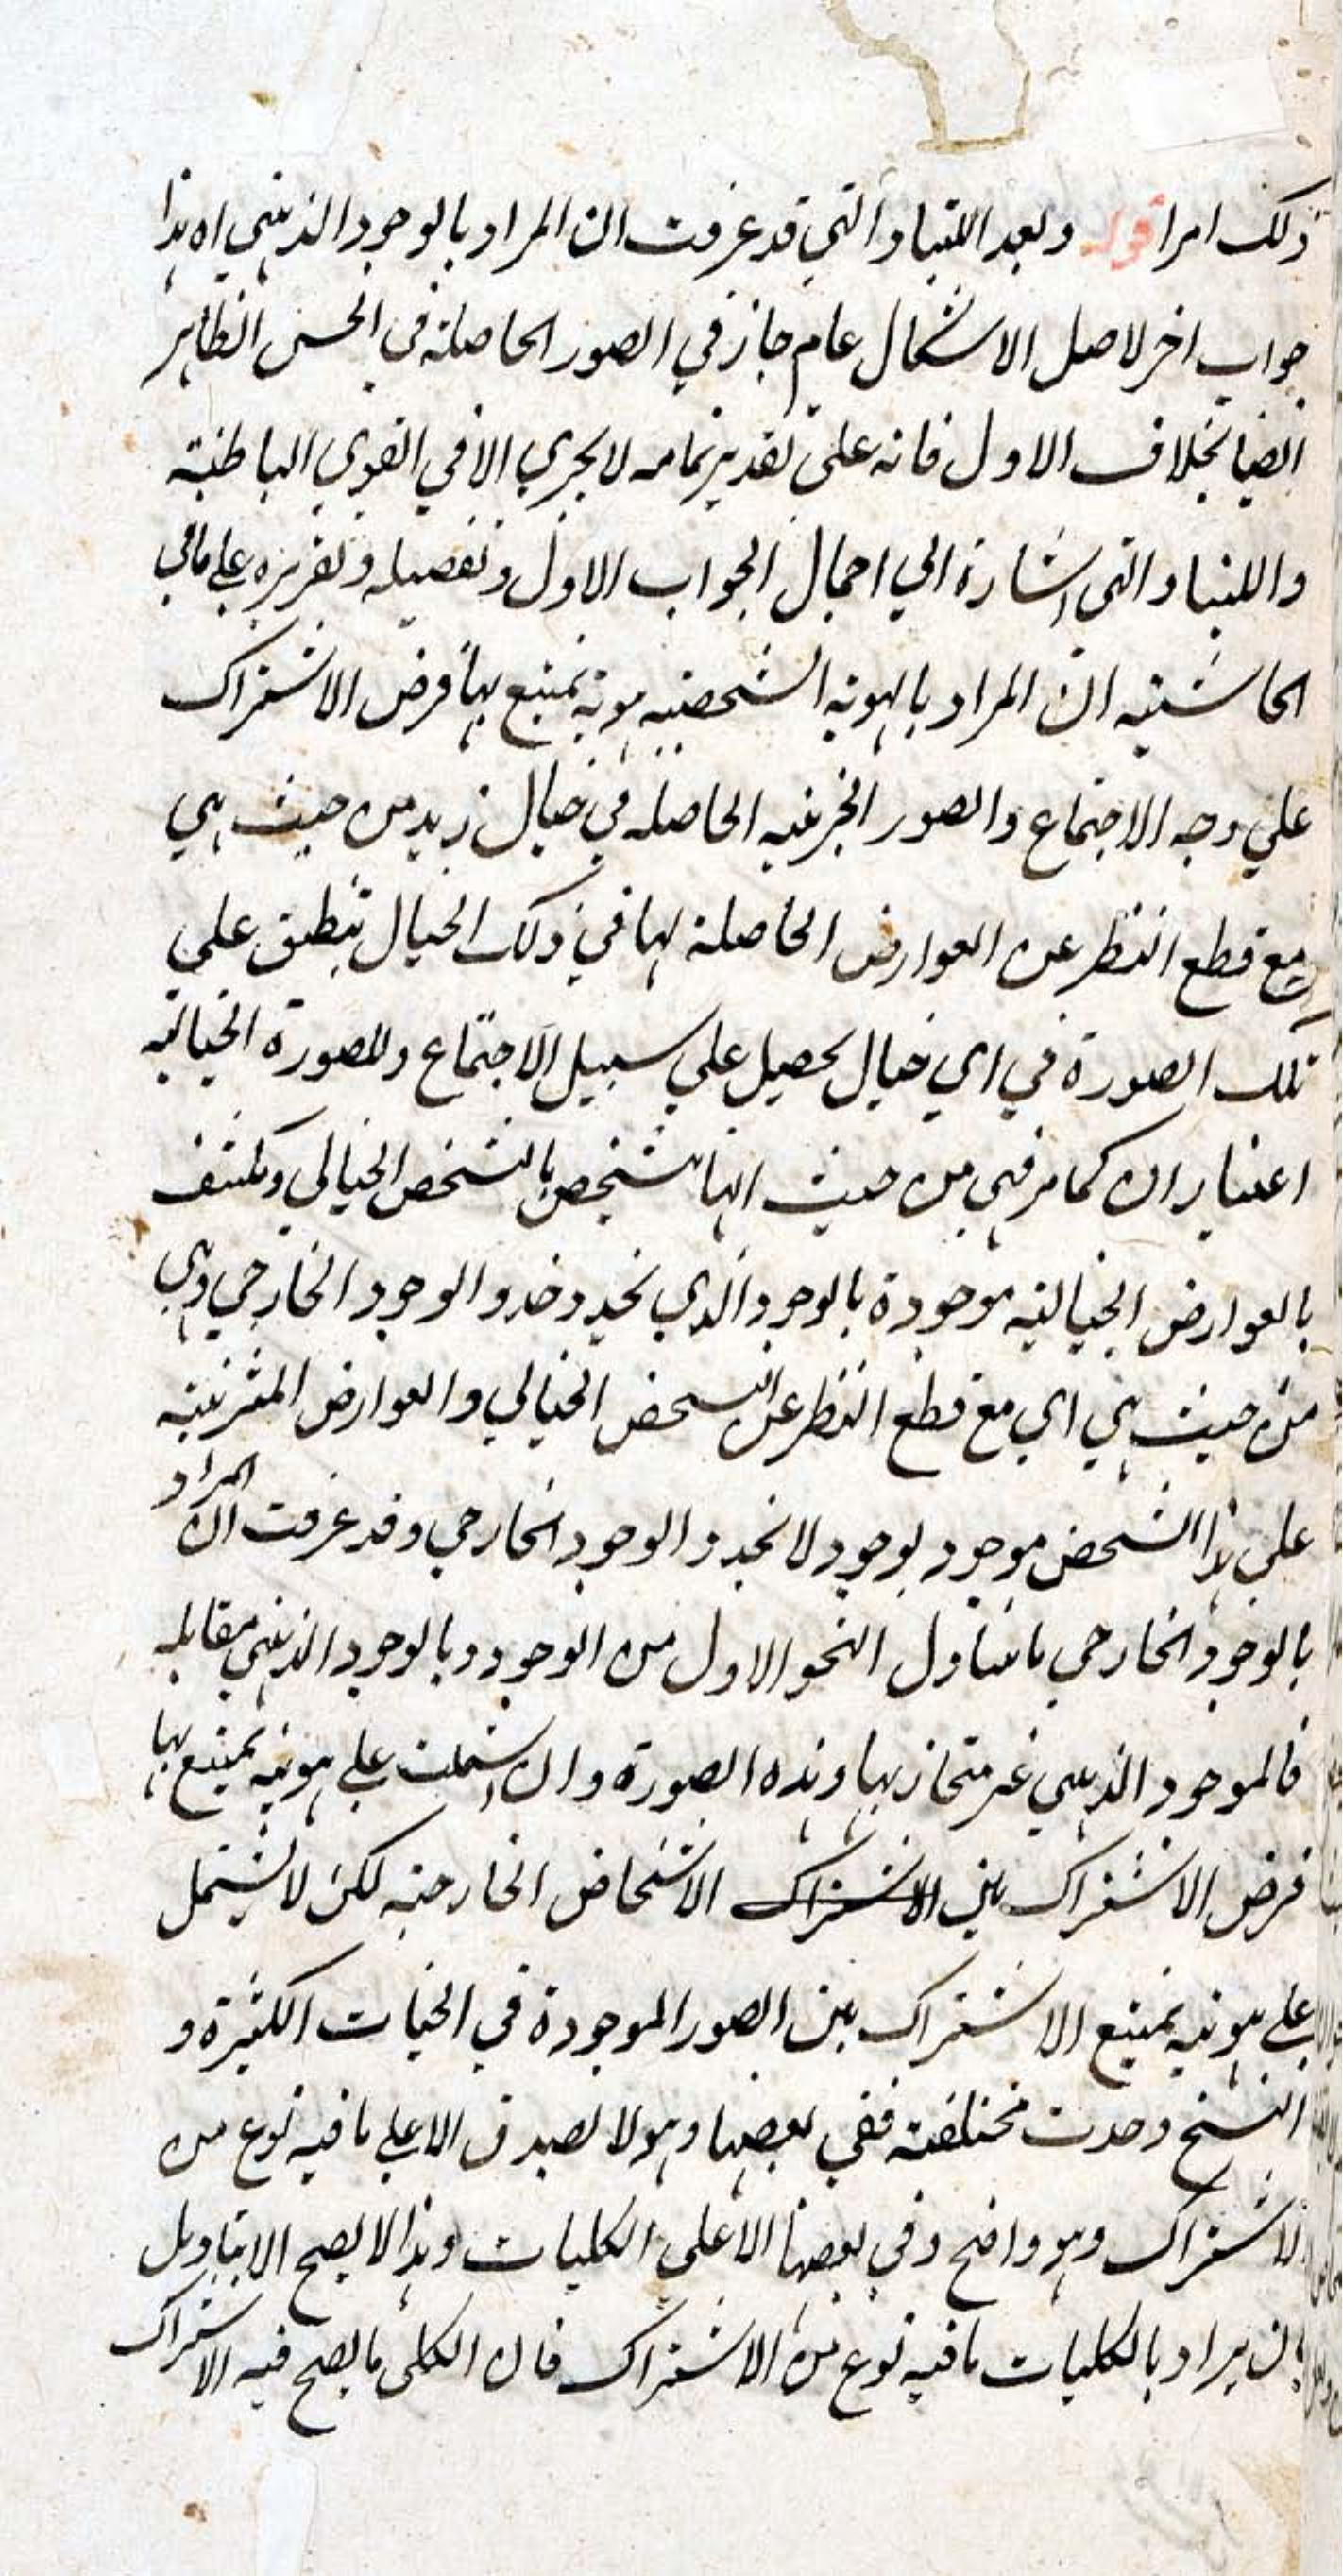 ذلك امرا قوله وبعد اللتيا والتي قد عرفت ان المراد بالوجود الذهني اه هذا
جواب اخر لاصل الاشكال عام جاز في الصور الحاصلة في الحس الظاهر
ايضا بخلاف الاول فانه على تقدير تمامه لا يجري الا في القوي الباطنية
واللتيا والتي اشارة الي اجمال الجواب الاول وتفصيله وتقريره علي ما في
الحاشيه ان المراد بالهوية الشخصيه هوية يمتنع بها فرض الاشتراك
علي وجه الاجتماع والصور الجزئيه الحاصله في خيال زيد من حيث هي
مع قطع النظر عن العوارض الحاصلة لها في ذلك الخيال تنطبق علي
تلك الصورة في اي خيال يحصل علي سبيل الاجتماع وللصورة الخياليه
اعتباران كما مر فهي من حيث انها تشخص بالتشخص الخيالي ومكتنف
بالعوارض الخياليه موجودة بالوجود الذي يحذو حذو الوجود الخارجي وهي
من حيث هي اي مع قطع النظر عن التشخص الخيالي والعوارض المترتبة
علي هذا التشخص موجود بوجود لا يحذو الوجود الخارجي وقد عرفت ان المراد
بالوجود الخارجي ما يتناول النحو الاول من الوجود وبالوجود الذهني مقابله
فالموجود الذهني غير متحاز بها وهذه الصورة وان اشتملت علي هوية يمتنع بها
فرض الاشتراك بين الاشتراك الاشخاص الخارجية لكن لا يشتمل
علي هوية يمتنع الاشتراك بين الصور الموجودة في الخيات الكثيرة و
النسخ وجدت مختلفة ففي بعضها وهو لا يصدق الا علي ما فيه نوع من
الاشتراك وهو واضح وفي بعضها الا علي الكليات وهذا لا يصح الا بتاويل
بان يراد بالكليات ما فيه نوع من الاشتراك فان الكلي ما يصح فيه الاشتراك